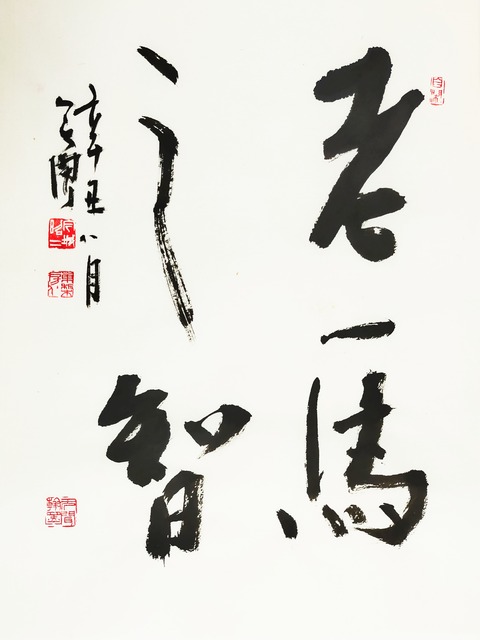 老馬
之智
辛丑八月